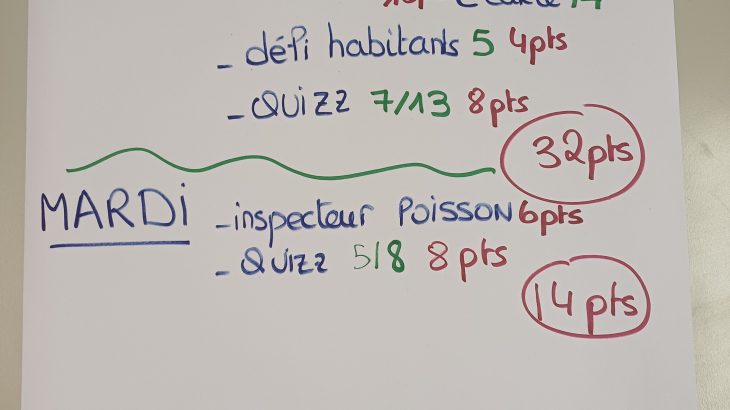 - défi habitants 5 4pts
- QUiZZ 7/13 8pts
32pts
MARDi - inspecteur POISSON 6pts
- QUIZZ 5/8 8pts
14pts